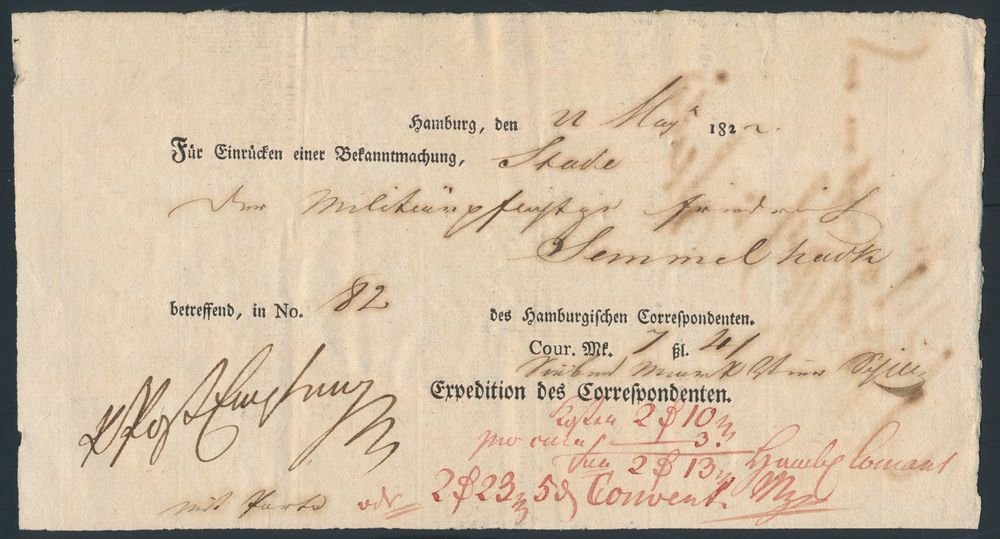 Hamburg, den 22 May 1822.
Für Einrücken einer Bekanntmachung, Stade
Der Militärpflichtige Friedrich
Semmelhack
betreffend, in No. 82 des Hamburgischen Correspondenten.
Cour. Mk. 7 ßl. 4
Sieben Marck Vier Schill
Expedition des Correspondenten.
Kosten 2 10
3.
2 13 Hambg Courant
mit Porto oder 2 23 5 Convent. Mz